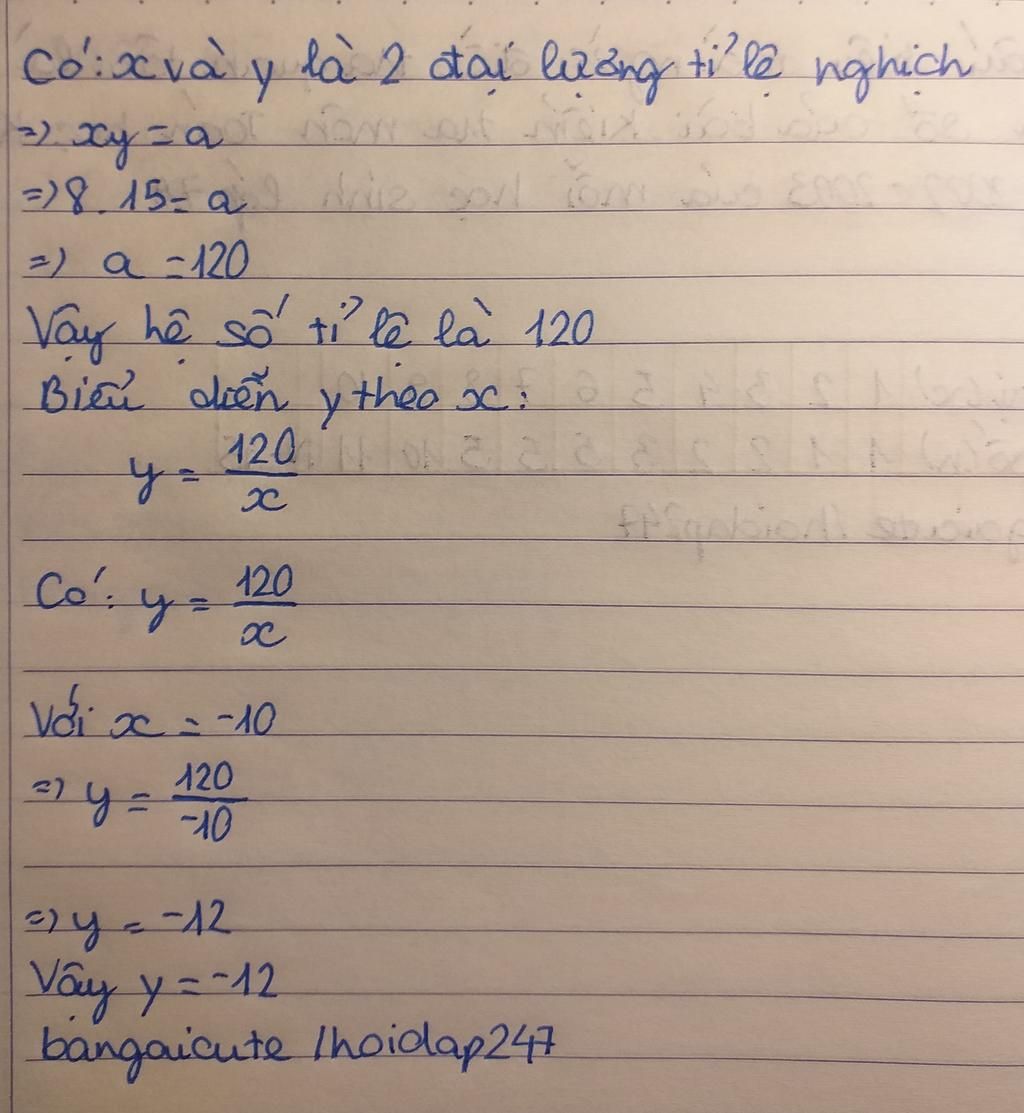 Có: x và y là 2 đại lượng tỉ lệ nghịch
=> xy = a
=> 8 . 15 = a
=> a = 120
Vậy hệ số tỉ lệ là 120
Biểu diễn y theo x :
y = 120/x
Có : y = 120/x
Với x = -10
=> y = 120/-10
=> y = -12
Vậy y = -12
bangaicute /hoidap247